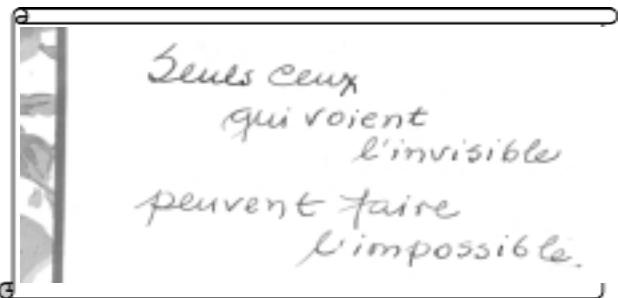 Seuls ceux
qui voient
l'invisible
peuvent faire
l'impossible.